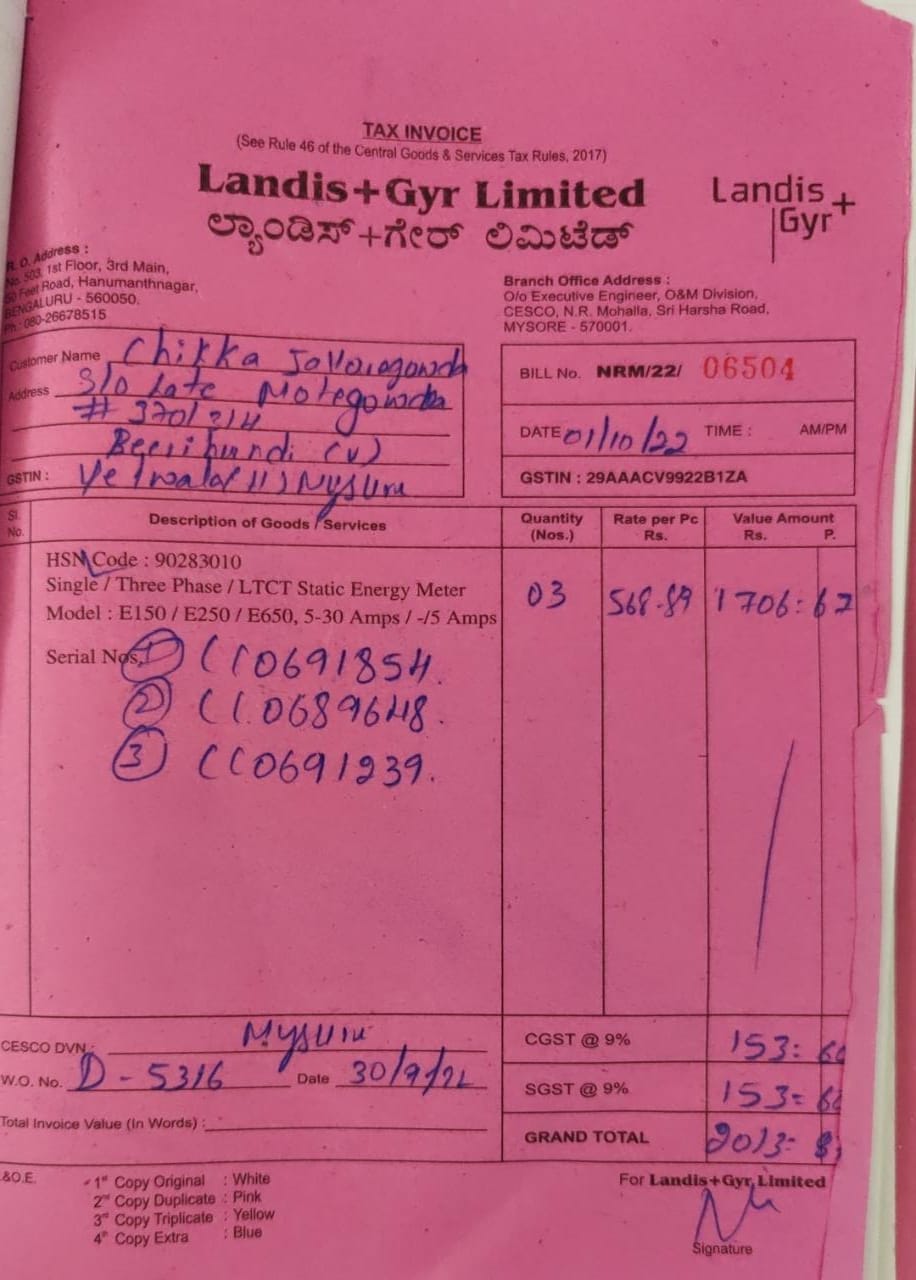 TAX INVOICE
(See Rule 46 of the Central Goods & Services Tax Rules, 2017)
Landis+Gyr Limited
ಲ್ಯಾಂಡಿಸ್+ಗೇರ್ ಲಿಮಿಟೆಡ್
Landis+
Gyr
R. O. Address :
No. 503, 1st Floor, 3rd Main,
50 Feet Road, Hanumanthnagar,
BENGALURU - 560050.
Ph : 080-26678515
Branch Office Address :
O/o Executive Engineer, O&M Division,
CESCO, N.R. Mohalla, Sri Harsha Road,
MYSORE - 570001.
Customer Name Chikka
Address S/o Late Motegowda
# 370/214
Beerihundi (V)
GSTIN : Mysuru
BILL No. NRM/22/ 06504
DATE 01/10/22 TIME : AM/PM
GSTIN : 29AAACV9922B1ZA
Sl. No. Description of Goods / Services Quantity (Nos.) Rate per Pc Rs. Value Amount Rs. P.
HSN Code : 90283010
Single / Three Phase / LTCT Static Energy Meter
Model : E150 / E250 / E650, 5-30 Amps / -/5 Amps
03 568-89 1706: 67
Serial Nos. 1 CC0691854.
2 CC.0689648.
3 CC0691239.
CESCO DVN : Mysuru
W.O. No. D - 5316 Date 30/9/22
Total Invoice Value (In Words) :
CGST @ 9% 153:
SGST @ 9% 153=
GRAND TOTAL 2013-
&O.E.
1st Copy Original : White
2nd Copy Duplicate : Pink
3rd Copy Triplicate : Yellow
4th Copy Extra : Blue
For Landis+Gyr Limited
Signature